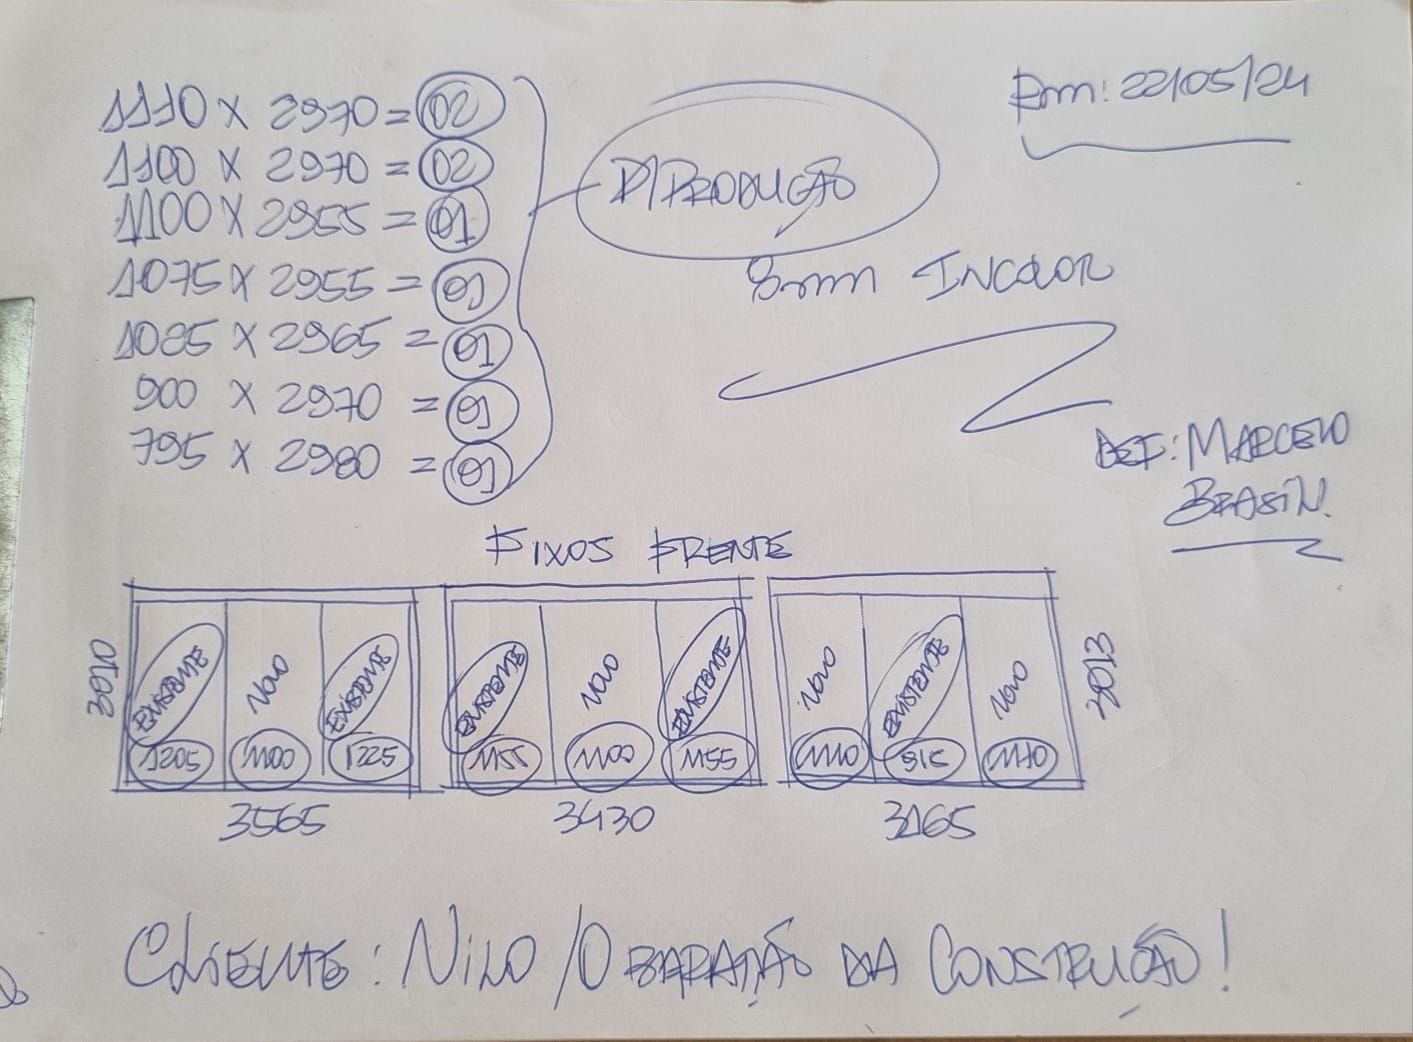 1110 X 2970 = 02
1100 X 2970 = 02
1100 X 2955 = 01
1075 X 2955 = 01
1085 X 2965 = 01
900 X 2970 = 01
795 X 2980 = 01
P/PRODUÇÃO
8mm INCOLOR
Em: 22/05/24
REF: MARCELO
BRASIN
FIXOS FRENTE
EXISTENTE NOVO EXISTENTE EXISTENTE NOVO EXISTENTE NOVO EXISTENTE NOVO
1205 1100 1225 1155 1100 1155 1110 915 1110
3565 3430 3165
3010
3013
CLIENTE: NILO / O BARATÃO DA CONSTRUÇÃO!